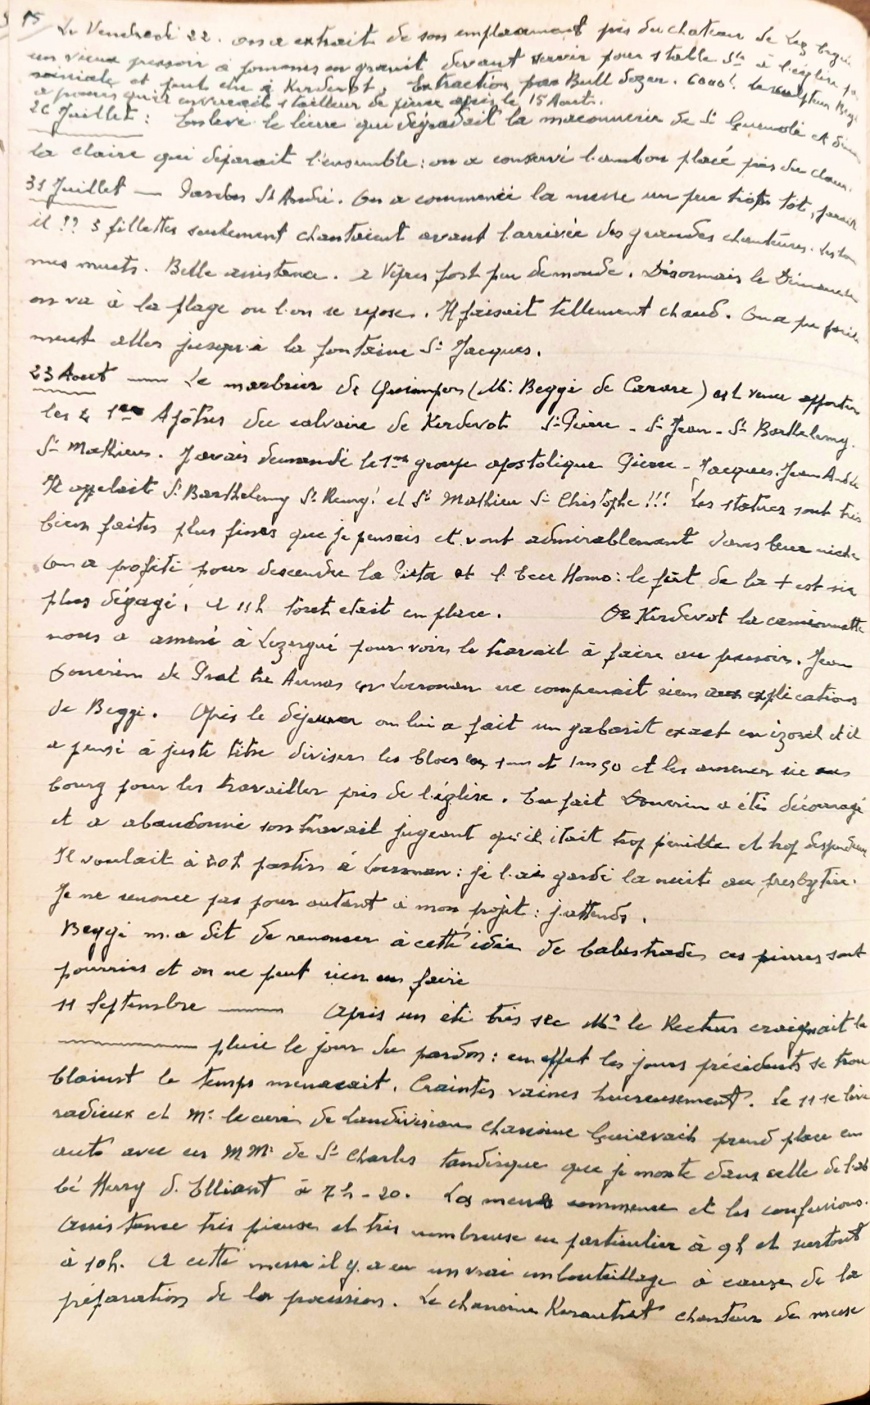 15 Le Vendredi 22. on a extrait de son emplacement près du chateau de Lez
un vieux pressoir à pommes en granit devant servir pour stable à l'église
et peut être à Kerdevot, Extraction par Bull dozer. 6000! le sculpteur
a promis qu'il enverrait 1 tailleur de pierre après le 15 Août.
26 Juillet : Enlevé le lierre qui dégradait la maçonnerie de St Guenolé et
la claire qui déparait l'ensemble : on a conservé l'ambon placé près du
31 Juillet — Pardon St André. On a commencé la messe un peu trop tot, parait
il !! 3 fillettes seulement chantaient avant l'arrivée des grandes chanteuses. les hom
mes muets. Belle assistance. à Vêpres fort peu de monde. Désormais le Dimanche
on va à la plage ou l'on se repose. Il faisait tellement chaud. On a pu
ment aller jusqu'à la fontaine St Jacques.
23 Aout — Le marbrier de Quimper (Mr. Beggi de Carare) est venu apporter
les 4 1ers Apôtres du calvaire de Kerdevot St Pierre - St Jean - St Barthelemy.
St Mathieu. J'avais demandé le 1er groupe apostolique Pierre - Jacques. Jean André
Il appelait St Barthelemy St Remy! et St Mathieu St Christophe !!! Les statues sont très
bien faites plus fines que je pensais et vont admirablement dans leur niche
On a profité pour descendre la Pieta et l'Ecce Homo : le fût de la + est
plus dégagé, à 11h tout etait en place. De Kerdevot la camionnette
nous a amené à Lezergué pour voir le travail à faire au pressoir. Jean
de Prat en Locronan ne comprenait rien aux explications
de Beggi. Après le déjeuner on lui a fait un gabarit exact en izorel et il
a pensé à juste titre diviser les blocs en 1m et 1m50 et les amener ici au
bourg pour les travailler près de l'église. En fait a été découragé
et a abandonné son travail jugeant qu'il était trop pénible et trop
Il voulait à 20h partir à Locronan : je l'ai gardé la nuit au presbytère.
Je ne renonce pas pour autant à mon projet : j'attends.
Beggi m'a dit de renoncer à cette idée de balustrade ces pierres sont
pourries et on ne peut rien en faire
11 Septembre — Après un été très sec Mr le Recteur craignait la
pluie le jour du pardon : en effet les jours précédents se trou
blaient le temps menaçait. Craintes vaines heureusement. Le 11 se lève
radieux et Mr le curé de Landivisiau chanoine prend place en
auto avec un MM. de St Charles tandisque que je monte dans celle de l'ab
bé Henry d'Elliant à 7h-20. Les messes commence et les confessions.
Assistance très pieuse et très nombreuse en particulier à 9h et surtout
à 10h. A cette messe il y a eu un vrai embouteillage à cause de la
préparation de la procession. Le chanoine Kerautret chanteur de messe